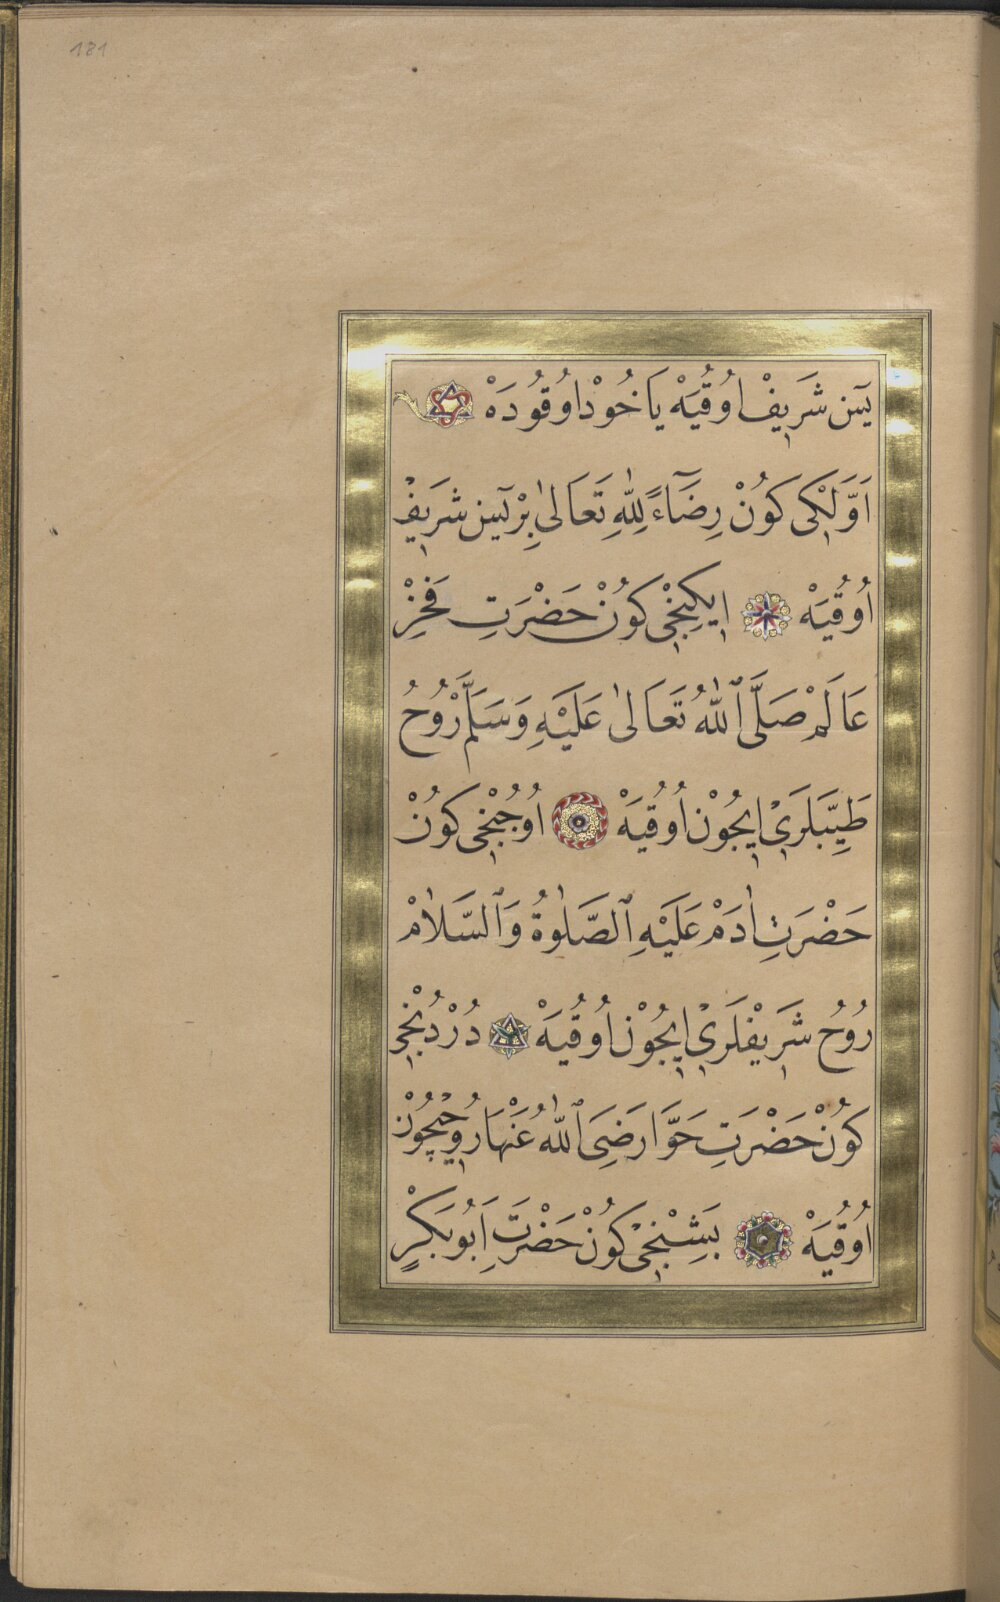 181
يٰسۤ شَرِيفْ اُوقُيَهْ يَاخُودْ اوُقُودَهْ
اَوَّلَكِى كُونْ رِضَآءً لِلّٰهِ تَعَالٰى بِرْ يٰسۤ شَرِيفْ
اُوقُيَهْ اِيكِنْجِى كُونْ حَضْرَتِ فَخْرِ
عَالَمْ صَلَّى ٱللّٰهُ تَعَالٰى عَلَيْهِ وَسَلَّمْ رُوحُ
طَيِّبَلَرِيْ اِيچُونْ اُوقُيَهْ اُوچُنْجِى كُونْ
حَضْرَتِ اٰدَمْ عَلَيْهِ ٱلصَّلٰوةُ وَٱلسَّلَامْ
رُوحُ شَرِيفْلَرِيْ اِيچُونْ اُوقُيَهْ دُرْدُنْجِى
كُونْ حَضْرَتِ حَوَّا رَضِىَ ٱللّٰهُ عَنْهَا رُوحِيْچُونْ
اُوقُيَهْ بَشِنْجِىْ كُونْ حَضْرَتِ اَبُو بَكْرٍ